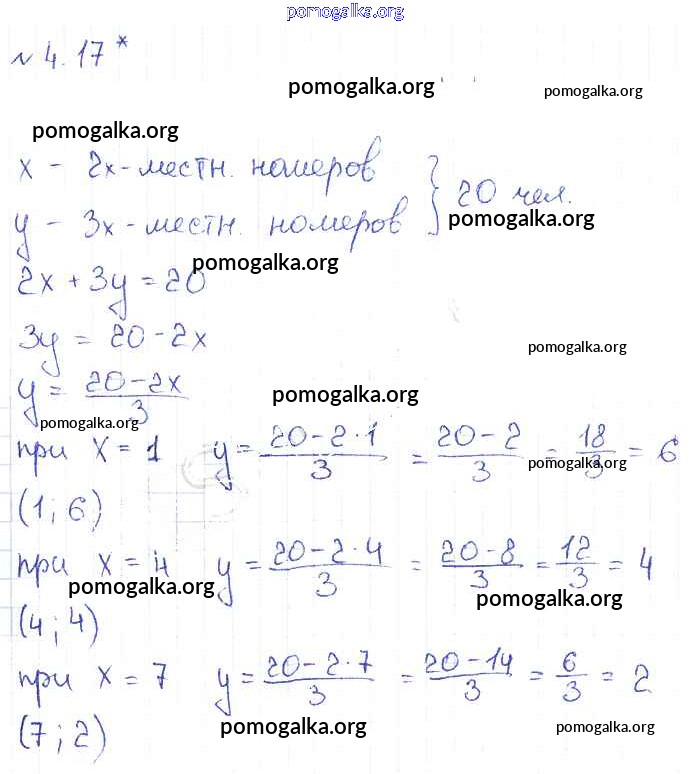 pomogalka.org
№ 4.17*
pomogalka.org pomogalka.org
pomogalka.org
x - 2х-местн. номеров } 20 чел.
y - 3х-местн. номеров
pomogalka.org
pomogalka.org
2x + 3y = 20
3y = 20 - 2x
pomogalka.org
y = (20-2x)/3
pomogalka.org
pomogalka.org
при x = 1 y = (20-2·1)/3 = (20-2)/3 = 18/3 = 6
pomogalka.org
(1; 6)
при x = 4 y = (20-2·4)/3 = (20-8)/3 = 12/3 = 4
pomogalka.org pomogalka.org
(4; 4)
при x = 7 y = (20-2·7)/3 = (20-14)/3 = 6/3 = 2
pomogalka.org pomogalka.org
(7; 2)